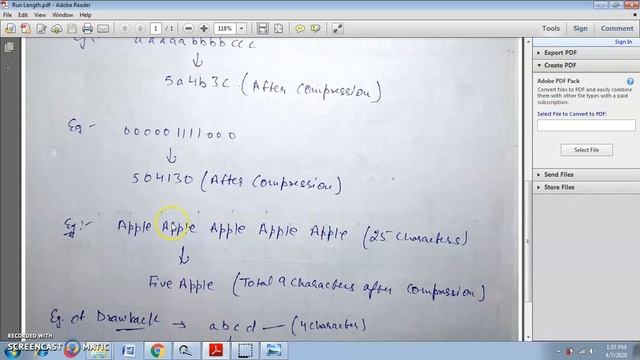 Run Length.pdf - Adobe Reader
File Edit View Window Help
1 / 1 118%
Tools Sign Comment
Sign In
Export PDF
Create PDF
Adobe PDF Pack
Convert files to PDF and easily combine them with other file types with a paid subscription.
Select File to Convert to PDF:
Select File
Edit PDF
Send Files
Store Files
Eg:- aaaaabbbbccc
↓
5a4b3c (After Compression)
Eg:- 000001111000
↓
504130 (After Compression)
Eg:- Apple Apple Apple Apple Apple (25 characters)
↓
Five Apple (Total 9 characters after compression)
Eg. of Drawback → abcd — (4 character)
RECORDED WITH
SCREENCAST MATIC
1:37 PM
4/7/2020